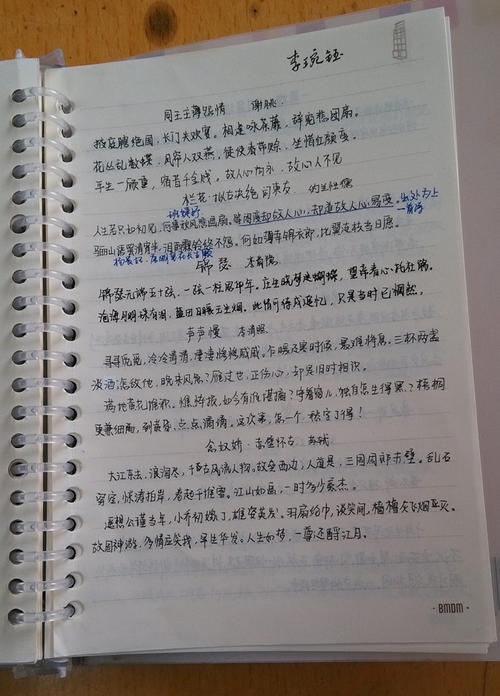 李琬钰
同王主簿怨情 谢朓
掖庭聘绝国，长门失欢宴。相逢咏荼蘼，辞宠悲团扇。
花丛乱数蝶，风帘入双燕。徒使春带赊，坐惜红颜变。
平生一顾重，宿昔千金贱。故人心尚永，故心人不见
木兰花·拟古决绝词柬友 纳兰性德
班婕妤
人生若只如初见，何事秋风悲画扇。等闲变却故人心，却道故人心易变。出处为上一首诗
骊山语罢清宵半，泪雨霖铃终不怨。何如薄幸锦衣郎，比翼连枝当日愿。
锦瑟 李商隐
锦瑟无端五十弦，一弦一柱思华年。庄生晓梦迷蝴蝶，望帝春心托杜鹃。
沧海月明珠有泪，蓝田日暖玉生烟。此情可待成追忆，只是当时已惘然。
声声慢 李清照
寻寻觅觅，冷冷清清，凄凄惨惨戚戚。乍暖还寒时候，最难将息。三杯两盏
淡酒，怎敌他，晚来风急？雁过也，正伤心，却是旧时相识。
满地黄花堆积。憔悴损，如今有谁堪摘？守着窗儿，独自怎生得黑？梧桐
更兼细雨，到黄昏，点点滴滴。这次第，怎一个愁字了得！
念奴娇·赤壁怀古 苏轼
大江东去，浪淘尽，千古风流人物。故垒西边，人道是，三国周郎赤壁。乱石
穿空，惊涛拍岸，卷起千堆雪。江山如画，一时多少豪杰。
遥想公瑾当年，小乔初嫁了，雄姿英发。羽扇纶巾，谈笑间，樯橹灰飞烟灭。
故国神游，多情应笑我，早生华发。人生如梦，一尊还酹江月。
·BMDM·